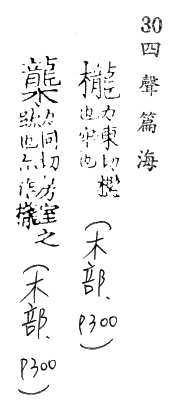 30 四聲篇海
櫳 力東切檻也牢也 (木部, P300)
㰍 力同切房室之疏也亦作櫳 (木部, P300)